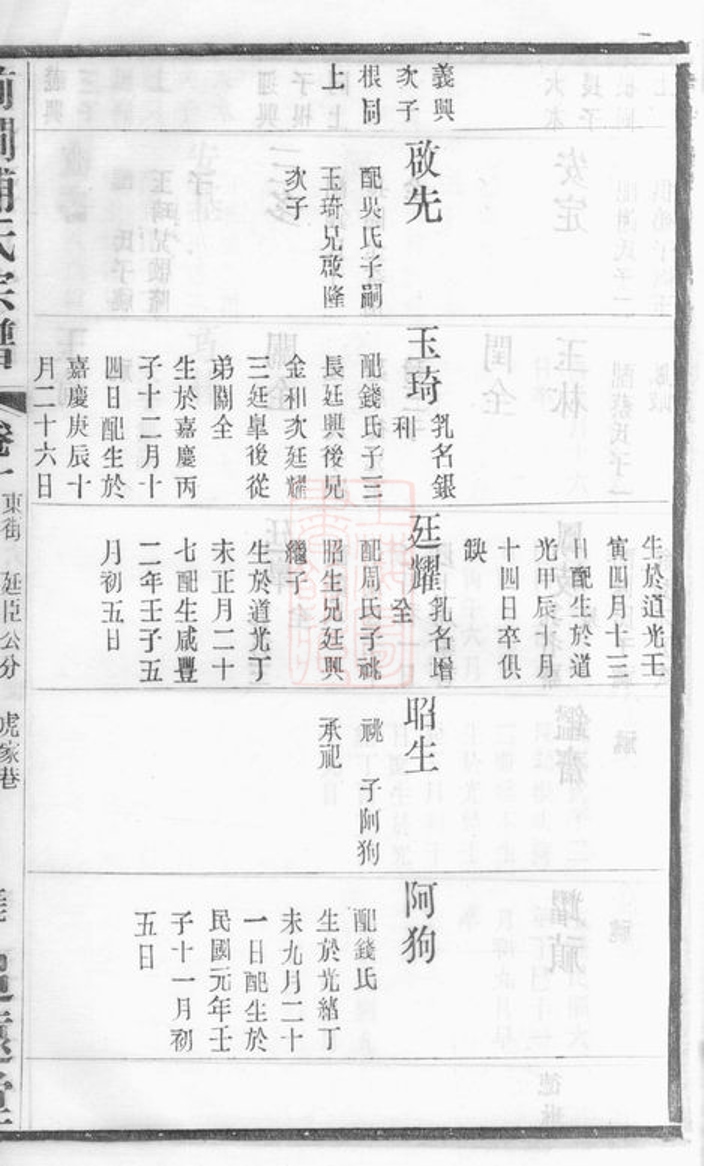 義興
次子
根同
上
啟先
配吳氏子嗣
玉琦兄啟隆
次子
玉琦
乳名銀
和
配錢氏子三
長廷興後兄
金和次廷耀
三廷臯後從
弟關全
生於嘉慶丙
子十二月十
四日配生於
嘉慶庚辰十
月二十六日
生於道光壬
寅四月十三
日配生於道
光甲辰十月
十四日卒俱
缺
廷耀
乳名增
全
配周氏子祧
昭生兄廷興
繼子
生於道光丁
未正月二十
七配生咸豐
二年壬子五
月初五日
昭生
祧 子阿狗
承祀
阿狗
配錢氏
生於光緒丁
未九月二十
一日配生於
民國元年壬
子十一月初
五日
氏宗譜
卷一
東街 廷臣公分 虎家巷